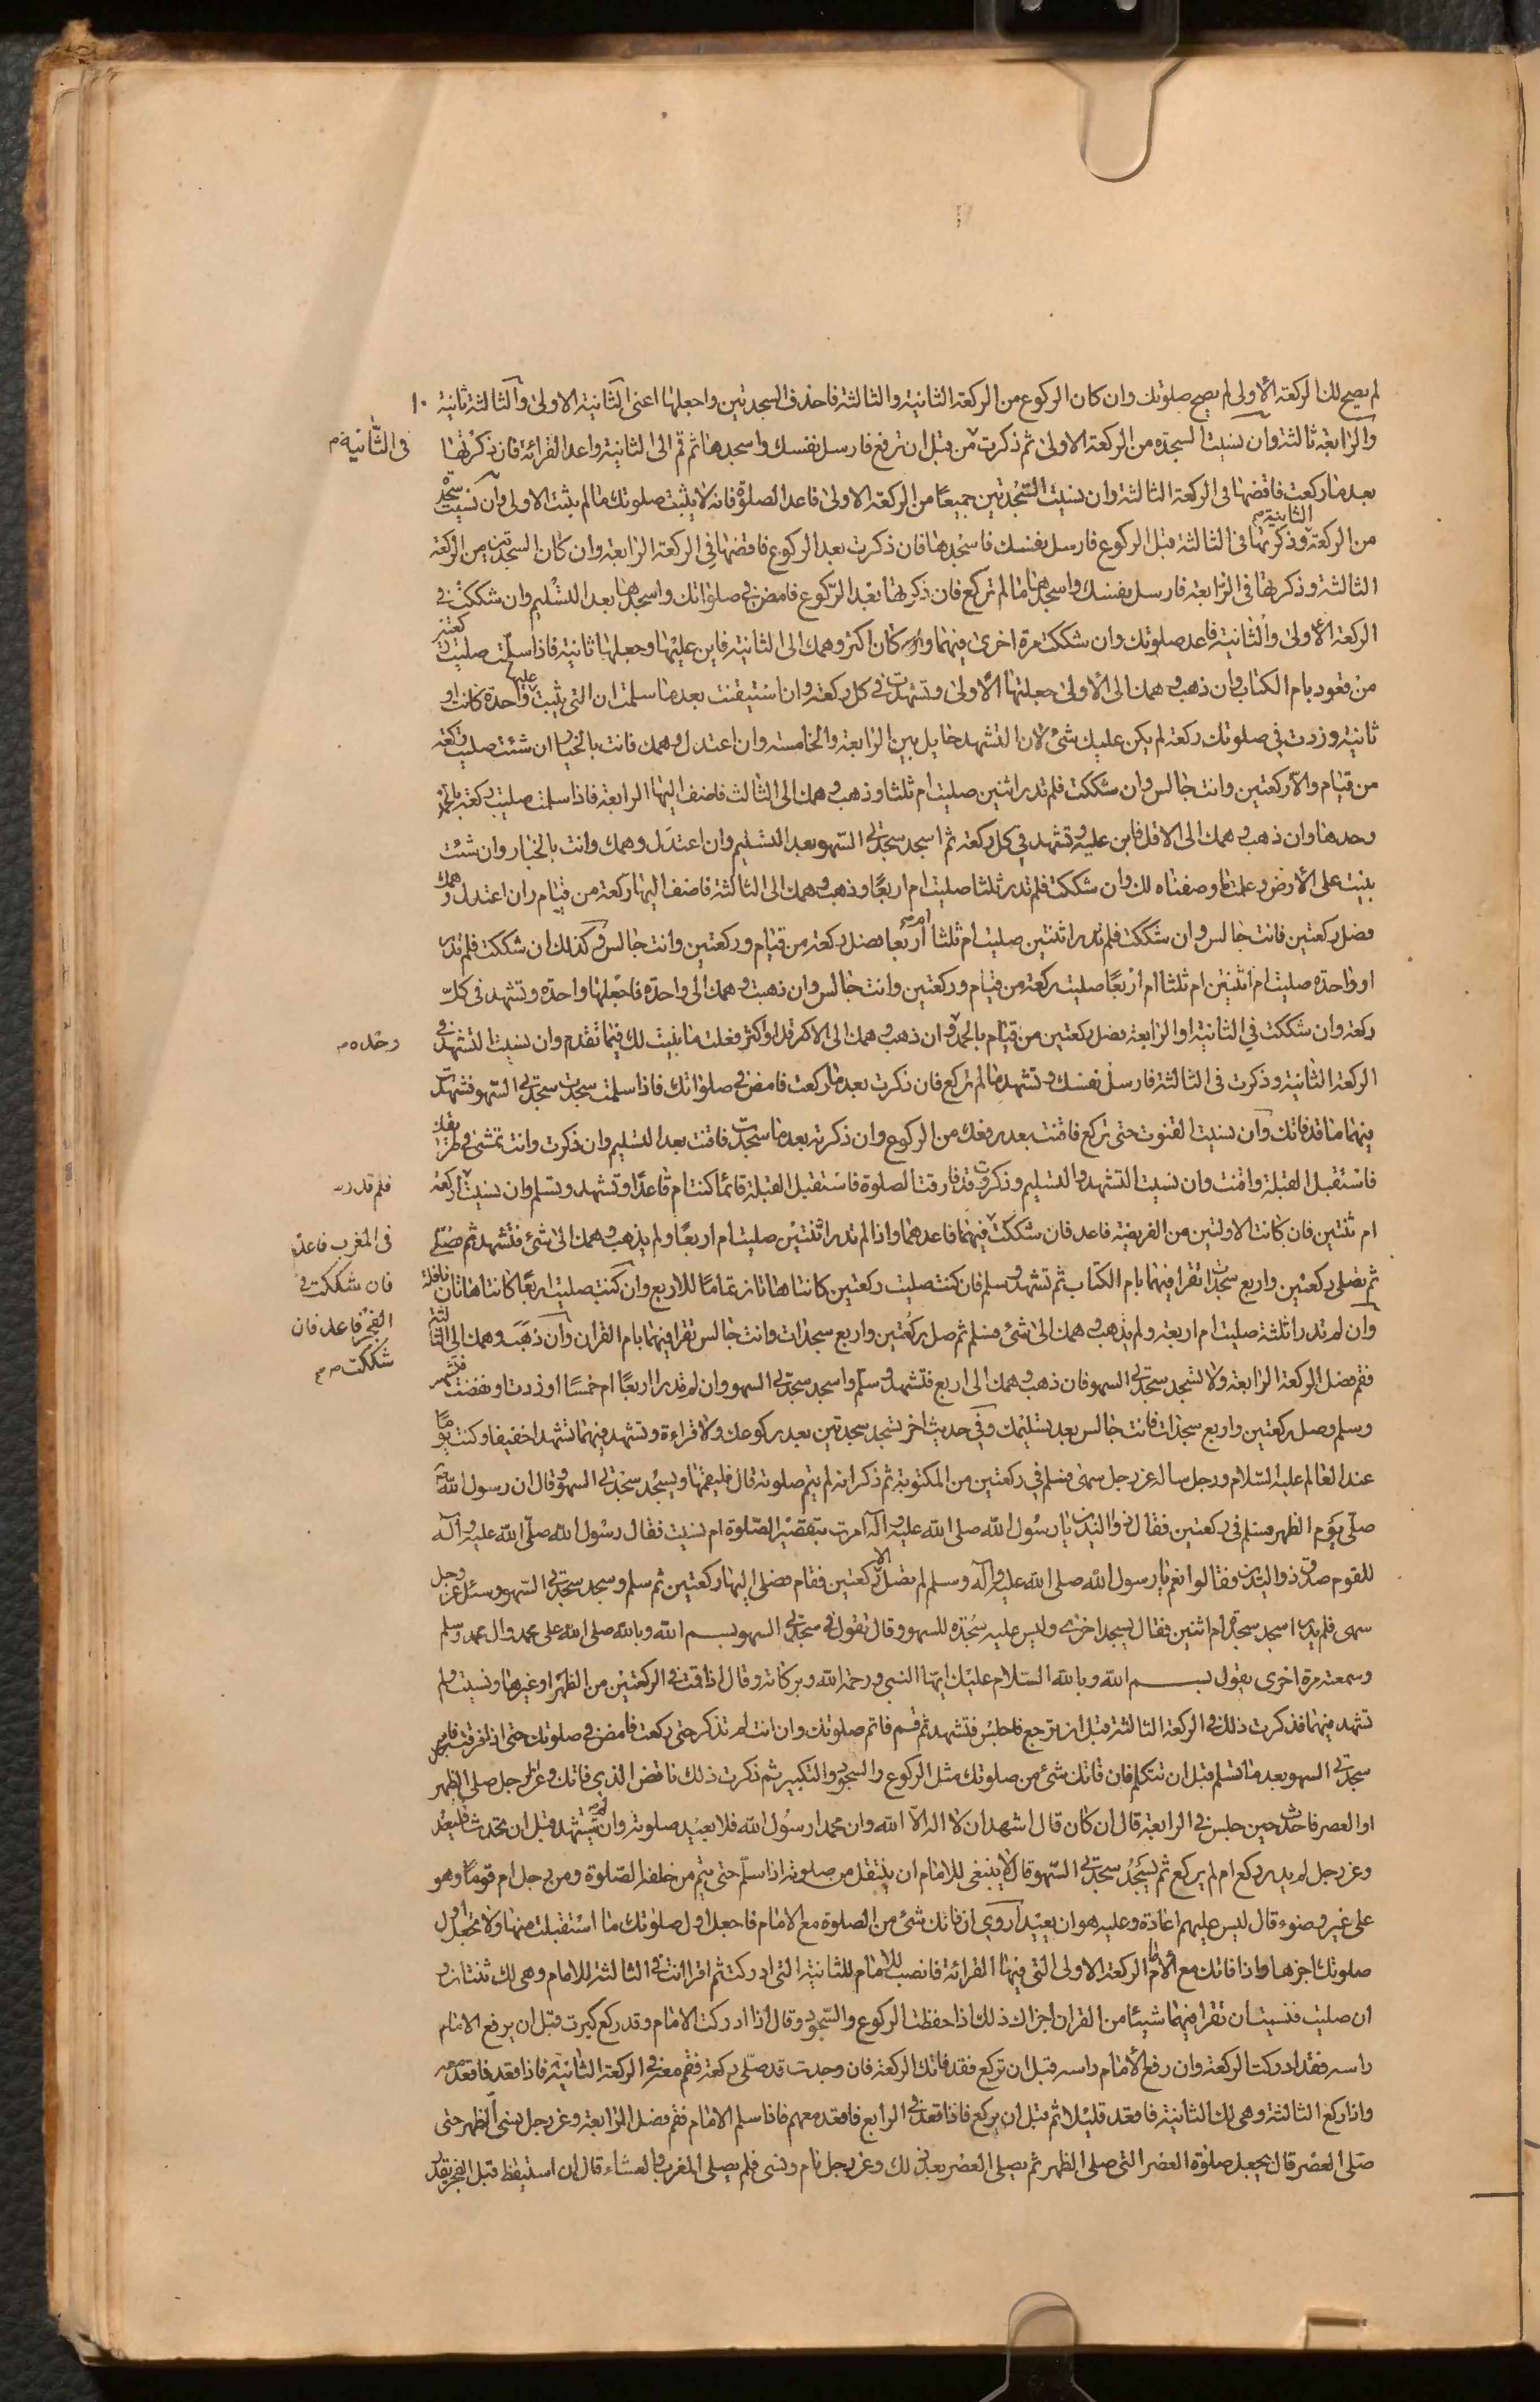 لم يصح لك الركعة الأولى لم يصح صلوتك وان كان الركوع من الركعة الثانية والثالثة فاحذف السجدتين واجعلها اعنى الثانية الاولى والثالثة ثانية
والرابعة ثالثة وان نسيت السجدة من الركعة الاولى ثم ذكرت من قبل ان ترفع فارسل نفسك واسجدها ثم قم الى الثانية واعد القرائة فان ذكرتها
فى الثانية م
بعد ما ركعت فاقضها فى الركعة الثالثة وان نسيت السّجدتين جميعًا من الركعة الاولى فاعد الصلوة فانه لا يثبت صلوتك ما لم يثبت الاولى وان نسيت سجدة
من الركعة الثانية وذكرتها فى الثالثة قبل الركوع فارسل نفسك فاسجدها فان ذكرت بعد الركوع فاقضها فى الركعة الرابعة وان كان السجدتين من الركعة
الثالثة وذكرتها فى الرّابعة فارسل نفسك واسجدها ما لم تركع فان ذكرتها بعد الرّكوع فامض فى صلوتك واسجدها بعد التسليم وان شككت فى
الركعة الأولى والثانية فاعد صلوتك وان شككت مرة اخرى فيهما وكان اكثر وهمك الى الثانية فابن عليها وجعلها ثانية فاذا سلّمت صليت ركعتين
من قعود بام الكتاب وان ذهب وهمك الى الأولى جعلتها الأولى وتشهدت فى كل ركعة وان استيقنت بعد ما سلمت ان التى بنيت عليها واحدة كانت او
ثانية وزدت فى صلوتك ركعة لم يكن عليك شئ لان التشهد حايل بين الرابعة والخامسة وان اعتدل وهمك فانت بالخيار ان شئت صليت ركعة
من قيام والا ركعتين وانت جالس وان شككت فلم تدر اثنين صليت ام ثلثا وذهب وهمك الى الثالث فاضف اليها الرابعة فاذا سلمت صليت ركعة بالحمد
وحدها وان ذهب وهمك الى الاقل فابن عليه وتشهد فى كل ركعة ثم اسجد سجدتى السّهو بعد التسليم وان اعتدل وهمك وانت بالخيار وان شئت
بنيت على الأرض وعلمت ما وصفناه لك وان شككت فلم تدر ثلثا صليت ام اربعًا وذهب وهمك الى الثالثة فاضف اليها ركعة من قيام وان اعتدل وهمك
فصل ركعتين فانت جالس وان شككت فلم تدر اثنتين صليت ام ثلثا ام اربعا فصل ركعة من قيام وركعتين وانت جالس وكذلك ان شككت فلم تدر
او واحدة صليت ام اثنتين ام ثلثا ام اربعًا صليت ركعة من قيام وركعتين وانت جالس وان ذهب وهمك الى واحدة فاجعلها واحدة وتشهد فى كلّ
ركعة وان شككت فى الثانية او الرابعة فصل ركعتين من قيام بالحمد وان ذهب وهمك الى الاكثر قدا واكثر فعلت ما بنيت لك فيما تقدم وان نسيت التشهد فى
وحده م
الركعة الثانية وذكرت فى الثالثة فارسل نفسك وتشهد ما لم تركع فان ذكرت بعد ما ركعت فامض فى صلواتك فاذا سلمت سجدت سجدتى السّهو فتشهدت
فيهما ما قد فاتك وان نسيت القنوت حتى تركع فاقنت بعد رفعك من الركوع وان ذكرته بعد ما سجدت فاقنت بعد التسليم وان ذكرت وانت تمشى فى طريقك
فاستقبل القبلة واقنت وان نسيت التشهد والتسليم وذكرت وقد فارقت الصلوة فاستقبل القبلة قائما كنت ام قاعدًا وتشهد وتسلم وان نسيت اركعة
فلم تدر
ام ثنتين فان كانت الاولتين من الفريضة فاعد فان شككت فيهما فاعدهما واذا لم تدر اثنتين صليت ام اربعًا ولم يذهب وهمك الى شئ فتشهد ثم
فى المغرب فاعد
فان شككت فى
الفجر فاعد فان
شككت م
ثم تصلى ركعتين واربع سجدات تقرا فيهما بام الكتاب ثم تشهد وسلم فان كنت صليت ركعتين كانتا هاتان تمامًا للاربع وان كنت صليت اربعًا كانتا هاتان نافلة
وان لم تدر اثلثة صليت ام اربعة ولم يذهب وهمك الى شئ فسلم ثم صل ركعتين واربع سجدات وانت جالس تقرا فيهما بام القران وان ذهب وهمك الى الثالثة
فقم فصل الركعة الرابعة ولا تسجد سجدتى السهو فان ذهب وهمك الى اربع فتشهد وسلّم واسجد سجدتى السهو وان لم تدر اربعًا ام خمسًا او زدت او نقصت فتشهد
وسلم وصل ركعتين واربع سجدات فانت جالس بعد تسليمك وفى حديث اخر تسجد سجدتين بعد ركوعك ولا قراءة وتشهد فيهما تشهدا خفيفا وكنت يومًا
عند العالم عليه السّلام ورجل ساله عن رجل سهى فسلم فى ركعتين من المكتوبة ثم ذكر انه لم يتم صلوته قال فليتمها ويسجد سجدتى السهو وقال ان رسول الله
صلّى يوم الظهر فسلم فى ركعتين فقال ذو اليدين يا رسول الله صلى الله عليه وآله امرت بتقصير الصّلوة ام نسيت فقال رسول الله صلّى الله عليه وآله
للقوم صدق ذو اليدين فقالوا نعم يا رسول الله صلى الله عليه وآله وسلم لم تصل الا ركعتين فقام فصلى اليها ركعتين ثم سلم وسجد سجدتى السّهو وسئل عن رجل
سهى فلم يدر اسجد سجدة ام اثنين فقال يسجد اخرى وليس عليه سجدة للسهو وقال تقول فى سجدتى السهو بسم الله وبالله صلى الله على محمد وال محمد وسلم
وسمعته مرة اخرى يقول بسم الله وبالله السّلام عليك ايها النبى ورحمة الله وبركاته وقال اذا قمت فى الركعتين من الظهر او غيرها ونسيت ولم
تشهد فيهما فذكرت ذلك فى الركعة الثالثة قبل ان ترجع فاجلس فتشهد ثم قسم فاتم صلوتك وان انت لم تذكر حتى ركعت فامض فى صلوتك حتى اذا فرغت فاسجد
سجدتى السهو بعد ما تسلم قبل ان تتكلم فان فاتك شئ من صلوتك مثل الركوع والسجود والتكبير ثم ذكرت ذلك فاقض الذى فاتك وعن رجل صلى الظهر
او العصر فاحدث حين جلس فى الرابعة قال ان كان قال اشهد ان لا اله الا الله وان محمدا رسول الله فلا يعيد صلوته وان لم يتشهد قبل ان يحدث فليعد
وعن رجل لم يدر ركع ام لم يركع ثم يسجد سجدتى السّهو قال لا ينبغى للامام ان ينتقل من صلوته اذا سلّم حتى يتم من خلفه الصّلوة ومن رجل ام قومًا وهو
على غير وضوء قال ليس عليهم اعادة وعليه هو ان يعيد اروى ان فاتك شئ من الصلوة مع الامام فاجعل اول صلوتك ما استقبلت منها ولا تجعل اول
صلوتك اخرها واذا فاتك مع الامام الركعة الاولى التى فيها القرائة فانصت للامام للثانية التى ادركت ثم اقرا انت فى الثالثة للامام وهى لك ثنتان و
ان صليت فنسيت ان تقرا فيهما شيئا من القران اجزاك ذلك اذا حفظت الركوع والسّجود وقال اذا ادركت الامام وقد ركع كبرت قبل ان يرفع الامام
راسه فقد ادركت الركعة وان رفع الأمام راسه قبل ان تركع فقد فاتك الركعة فان وجدت قد صلّى ركعة فقم معه فى الركعة الثانية فاذا قعد فاقعد معه
واذا ركع الثالثة وهى لك الثانية فاقعد قليلا ثم قبل ان يركع فاذا قعد فى الرابع فاقعد معهم فاذا سلم الامام فقم فصل الرابعة وعن رجل نسى الظهر حتى
صلى العصر قال يجعل صلوة العصر التى صلى الظهر ثم يصلى العصر بعد ذلك وعن رجل نام ونسى فلم يصلى المغرب والعشاء قال ان استيقظ قبل الفجر بقدر